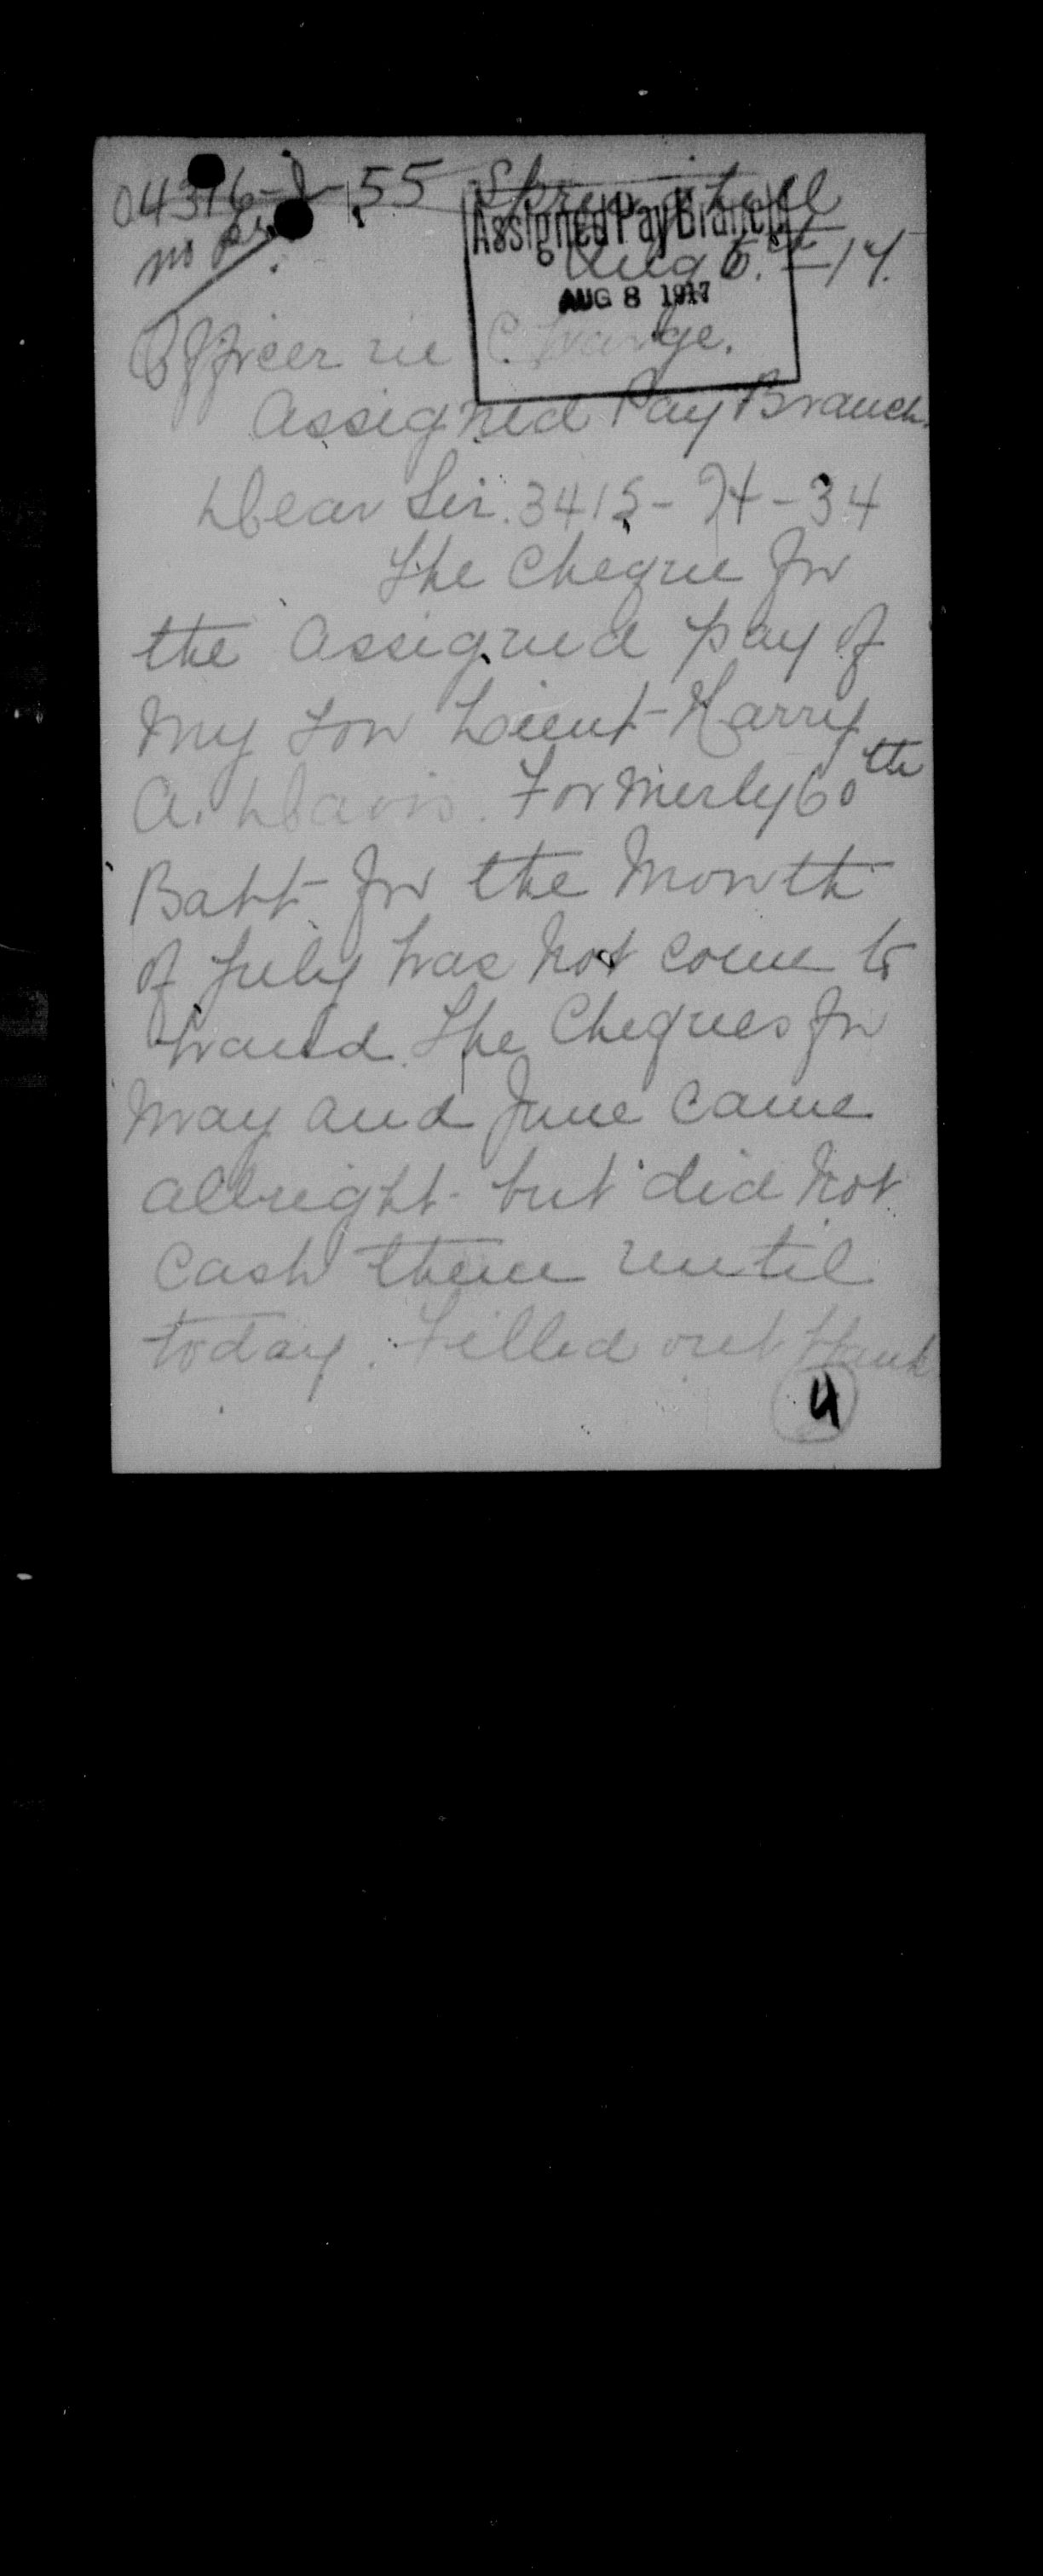 04316-D-55 Springhill
no pr.
Assigned Pay Branch
Aug 5.th-17.
AUG 8 1917
Officer in Charge.
Assigned Pay Branch.
Dear Sir. 3415-H-34
The Cheque for
the Assigned pay of
My son Lieut-Harry
A. Davis. Formerly 60th
Batt for the Month
of July has not come to
hand. The Cheques for
May and June came
allright but did not
Cash them until
today. Filled out
4